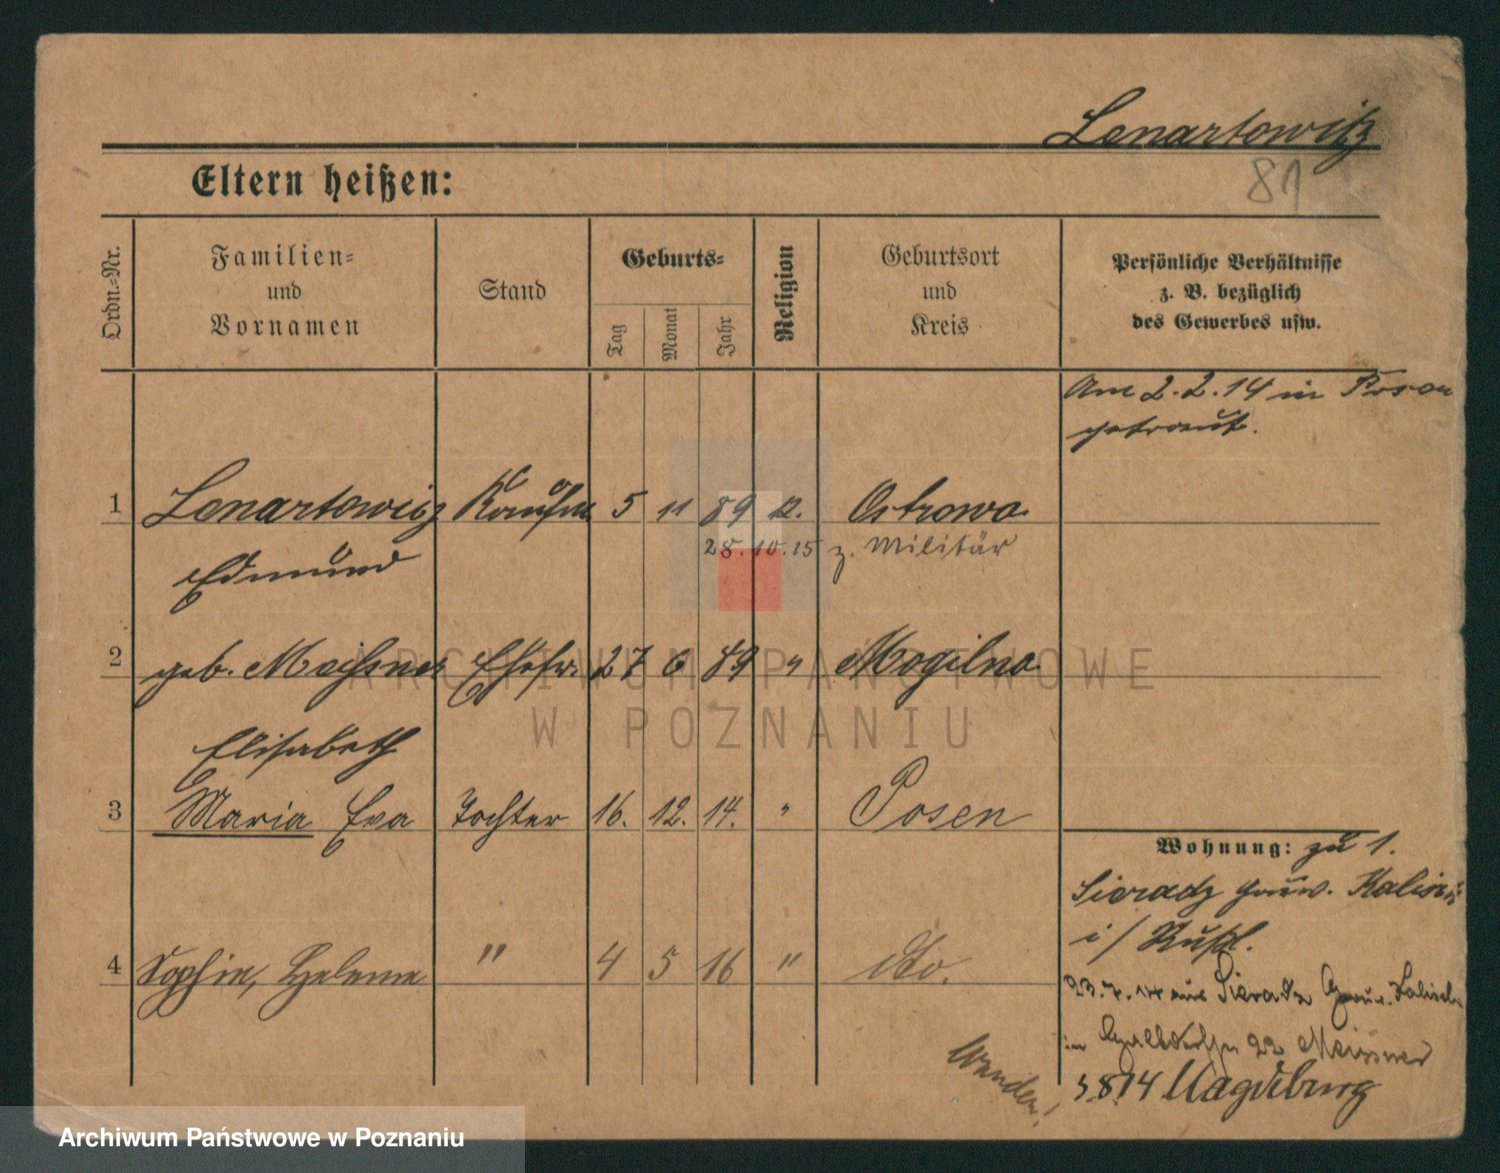 Lenartowitz
81
Eltern heißen:
Ordn.-Nr.
Familien- und Vornamen
Stand
Geburts-
Tag
Monat
Jahr
Religion
Geburtsort und Kreis
Persönliche Verhältnisse
z. B. bezüglich
des Gewerbes usw.
Am 2.2.14 in Posen
getraut.
1 Lenartowicz Kaufm. 5 11 89 k. Ostrowo
28.10.15 z. Militär
Edmund
2 geb. Ehefr. 27 6 89 " Mogilno
Elisabeth
3 Maria Eva Tochter 16. 12. 14. " Posen
Wohnung: zu 1.
Sieradz Gouv. Kalisch
i/ Rußl.
4 Sophie, Helene " 4 5 16 " do.
23.7.14 aus Sieradz Gouv. Kalisch
in 22 Meissner
3.8.14 Magdeburg
ARCHIWUM PAŃSTWOWE
W POZNANIU
Archiwum Państwowe w Poznaniu